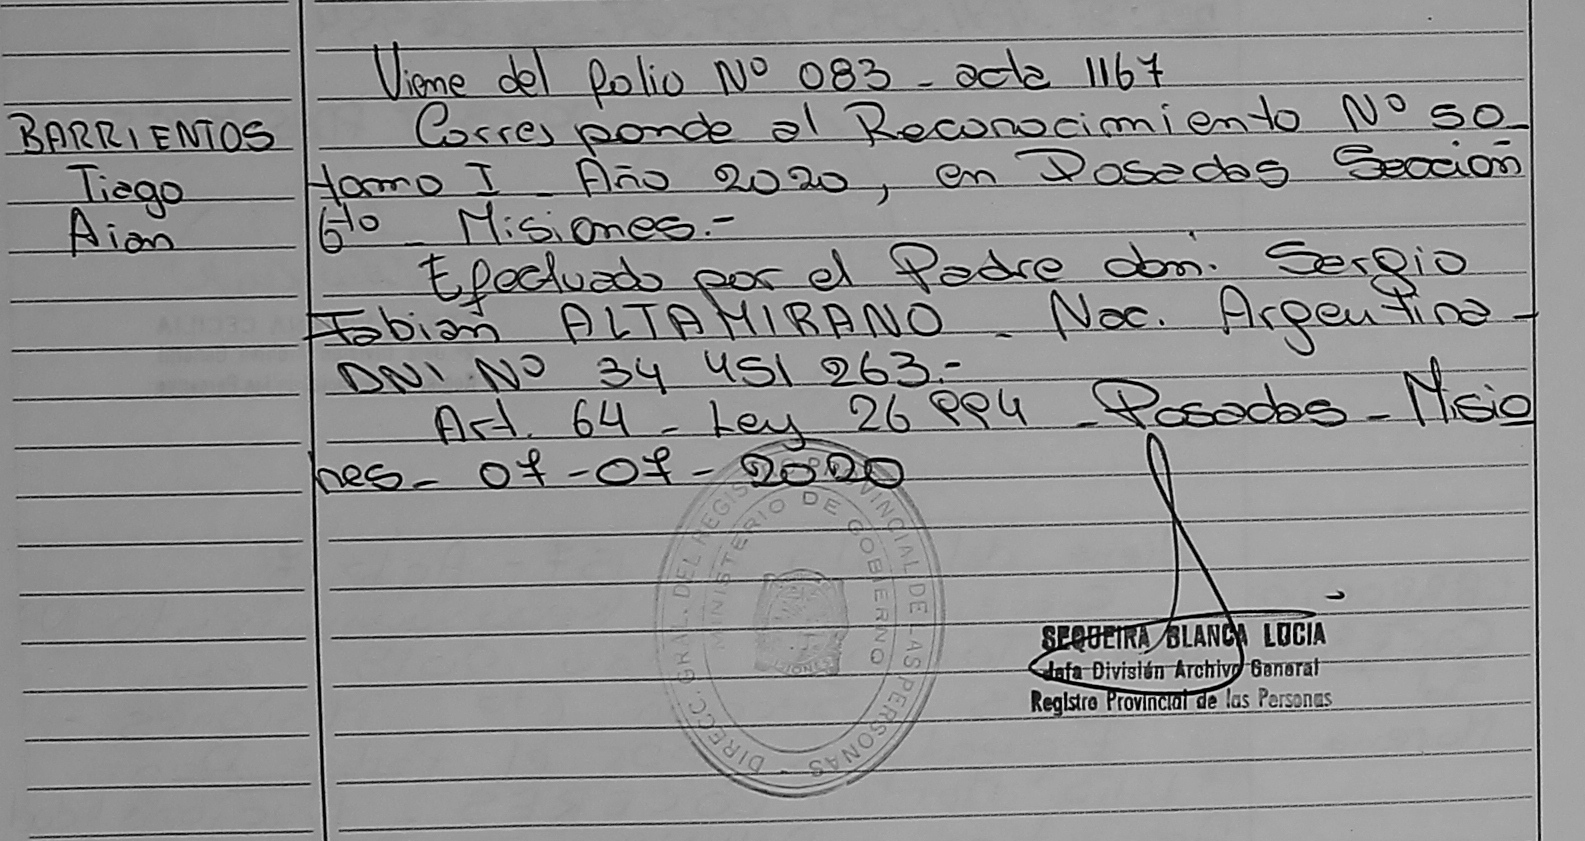 Viene del folio Nº 083 - acta 1167
BARRIENTOS
Tiago
Aian
Corresponde al Reconocimiento Nº 50
tomo I - Año 2020, en Posadas Sección
6to - Misiones.-
Efectuado por el Padre don: Sergio
Fabian ALTAMIRANO - Nac. Argentina -
DNI Nº 34 451 263.-
Art. 64 - Ley 26 994 - Posadas - Misio
nes - 07-07-2020
DIRECC. GRAL. DEL REGIS PROVINCIAL DE LAS PERSONAS
MINISTERIO DE GOBIERNO
SEQUEIRA BLANCA LUCIA
Jefa División Archivo General
Registro Provincial de las Personas